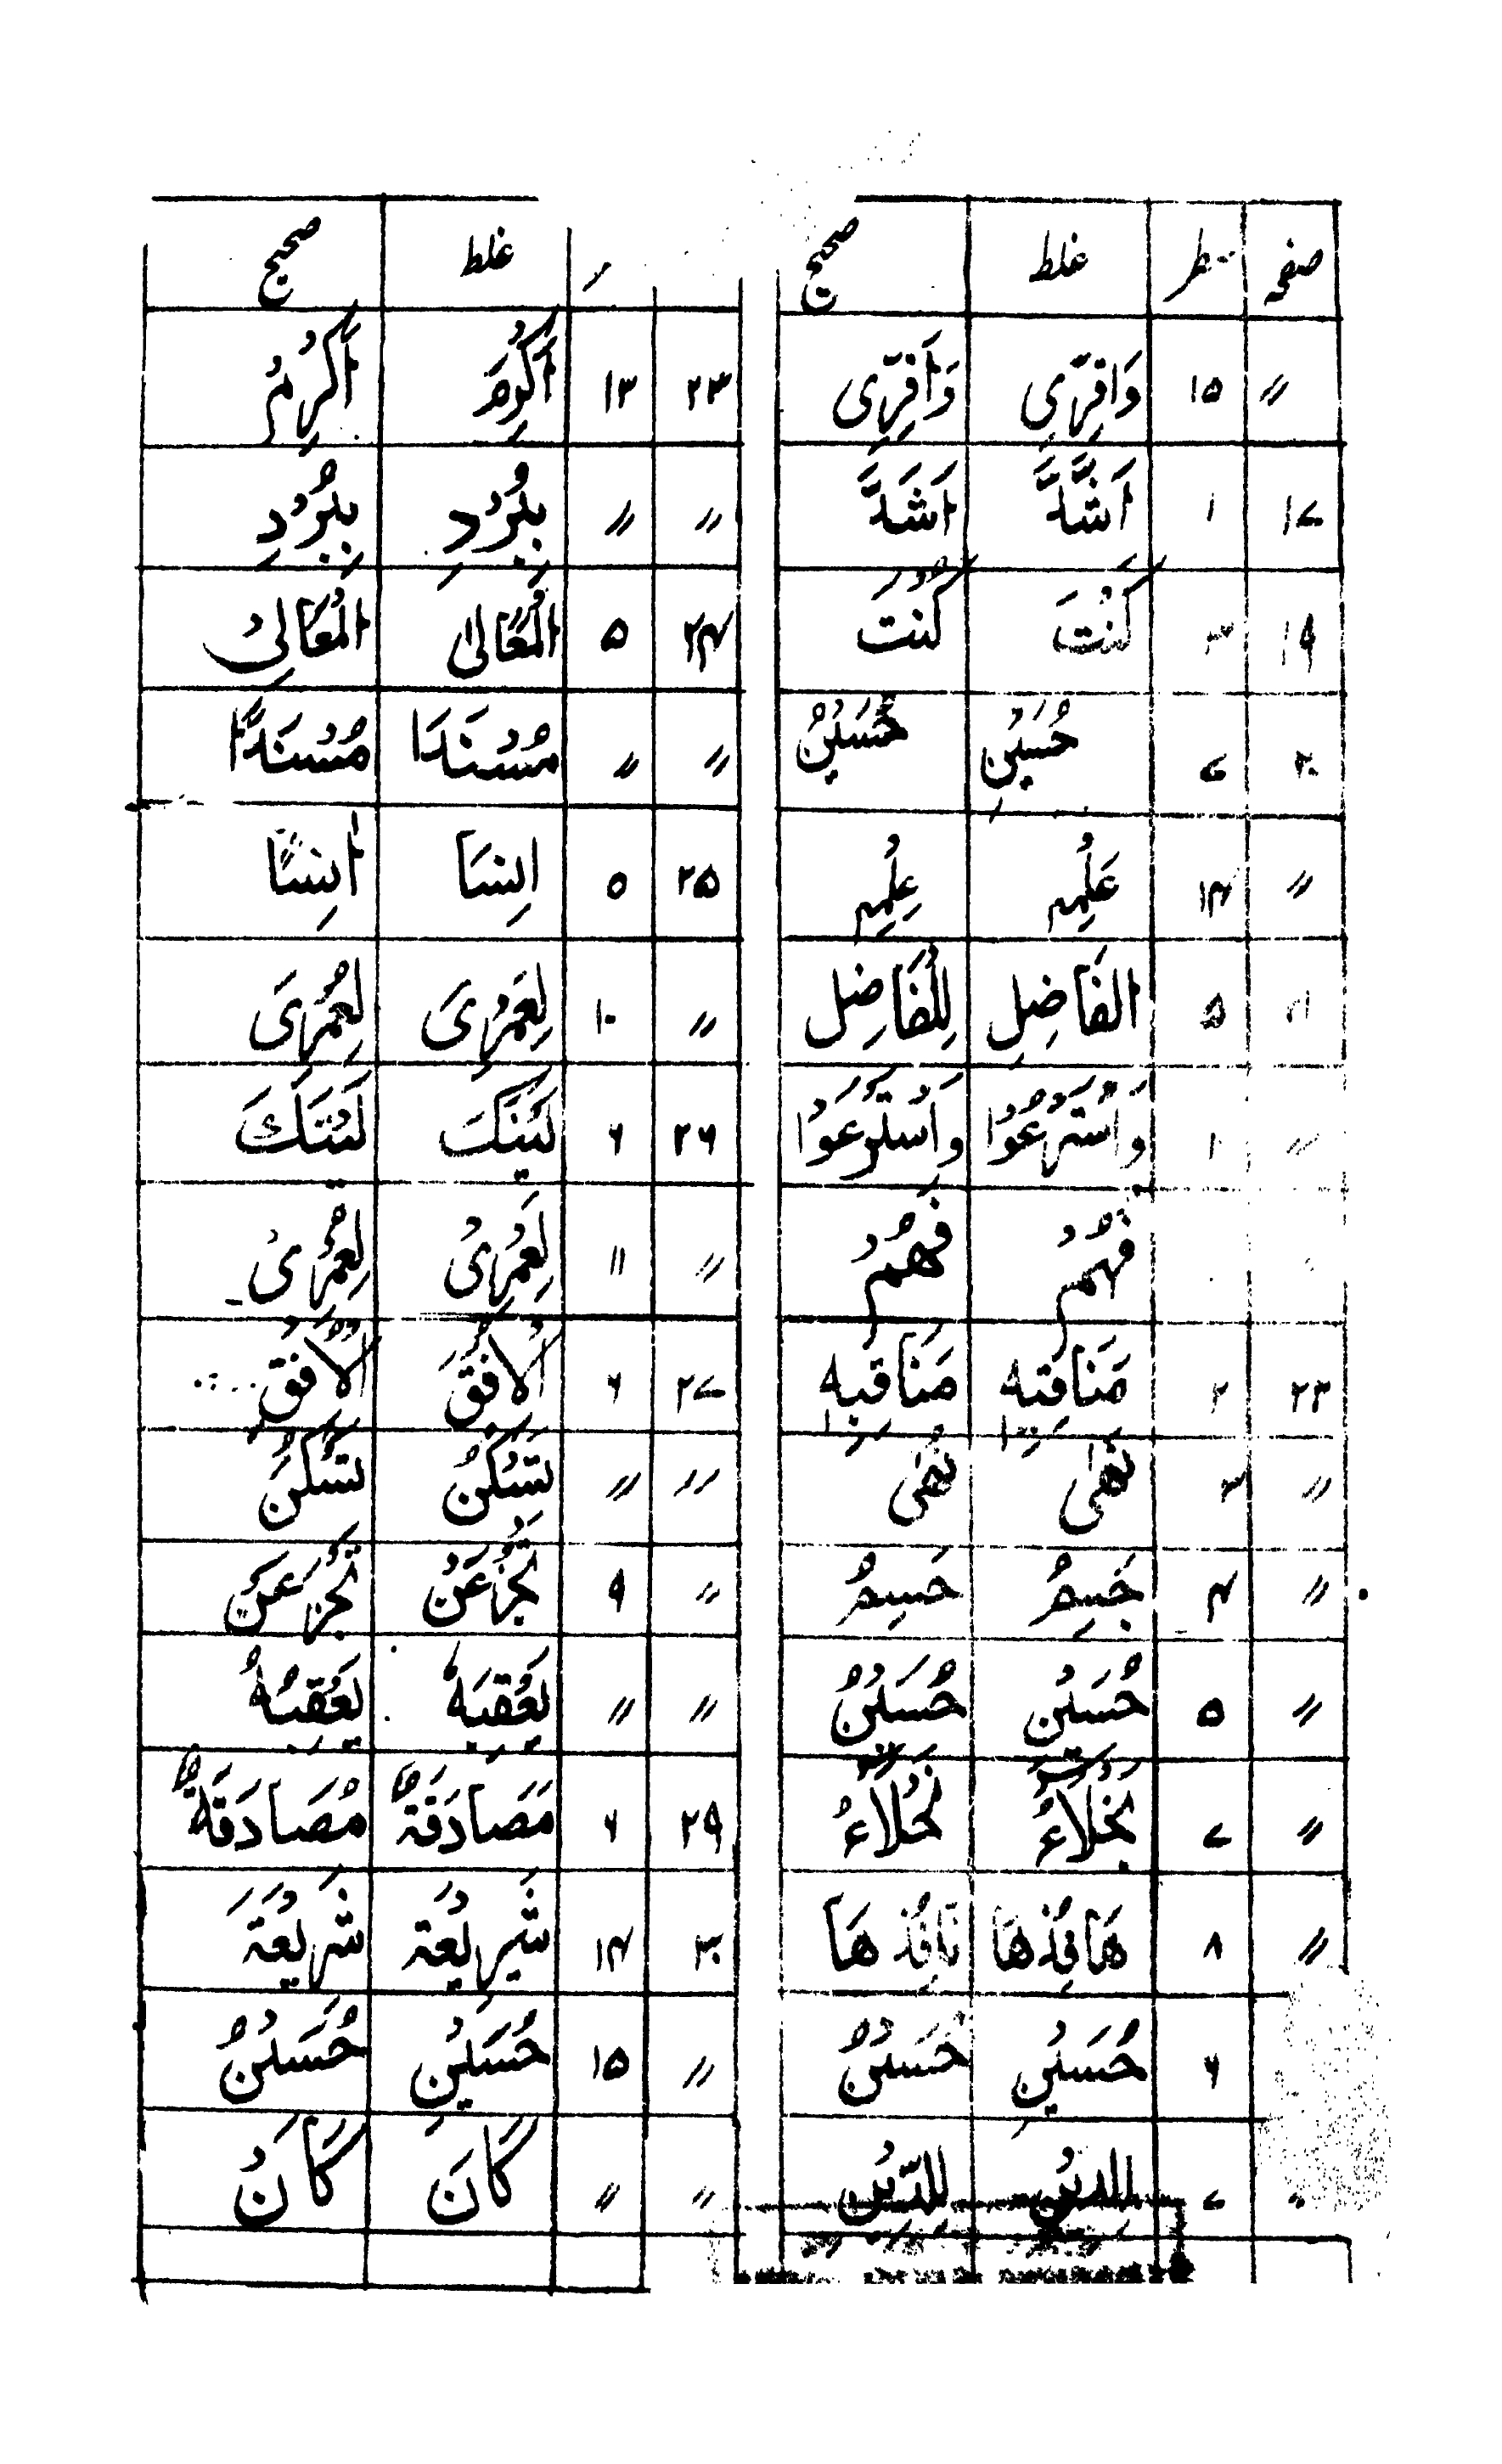 صفحہ سطر غلط صحیح
〃 ۱۵ وَاقِرّٰیِ وَأَقِرِّی
۱۷ ۱ اَشَّدَّ اَشَدَّ
۱۹ ۳ كَنْتَ كُنْتَ
۲۰ ۷ حُسَیْنِ حُسَیْنٌ
〃 ۱۴ عَلْمِہٖ عِلْمِہٖ
۵ الفَاضِلِ لِلْفَاضِل
〃 ۱ وَاسْتَرْعُوْا وَاَسْتَرْعَوْا
فَهُمْ فَهُمْ
۲۳ ۲ مَنَاقِتِه مَنَاقِبِه
〃 ۳ نَهٰی نُهٰی
〃 ۴ جَسِمٌ حَسِمٌ
〃 ۵ حُسَیْن حُسَیْنٌ
〃 ۷ بُخَلَاءُ نُحَلَاءُ
〃 ۸ هَافِذُهَا نَافِذُهَا
۶ حُسَیْنِ حُسَیْنٌ
۷ لِلدِیْنِ لِلدِّیْنِ
غلط صحیح
۲۳ ۱۳ اَكْرِمَ اَكْرِمْ
〃 〃 بِبُرْدٍ بِبُرْدِ
۲۴ ۵ الْمَعَالیٰ الْمَعَالِیْ
〃 〃 مُسْنَدَا مُسْنَدًا
۲۵ ۵ اِنِسَا اٰنِسًا
〃 ۱۰ لِعَمْرِیَ لِعُمْرِیَ
۲۶ ۶ لَیْنَكَ لَیْتَكَ
〃 ۱۱ لِعَمْرِیْ لِعُمْرِیْ
۲۷ ۶ اَلْاُفْقَ اَلْاُفْقُ
〃 〃 تَسْكِنُ تَسْكُنُ
〃 ۹ تَجْزِعَنْ تَجْزَعَنْ
〃 〃 یَعْقِبَهٗ یَعْقِبُهٗ
۲۹ ۶ مَصَادَقَةً مُصَادَقَةً
۳۰ ۱۴ شَرِیْعَة شَرِیْعَةَ
〃 ۱۵ حُسَیْنِ حُسَیْنٌ
〃 〃 كَانَ كَانْ